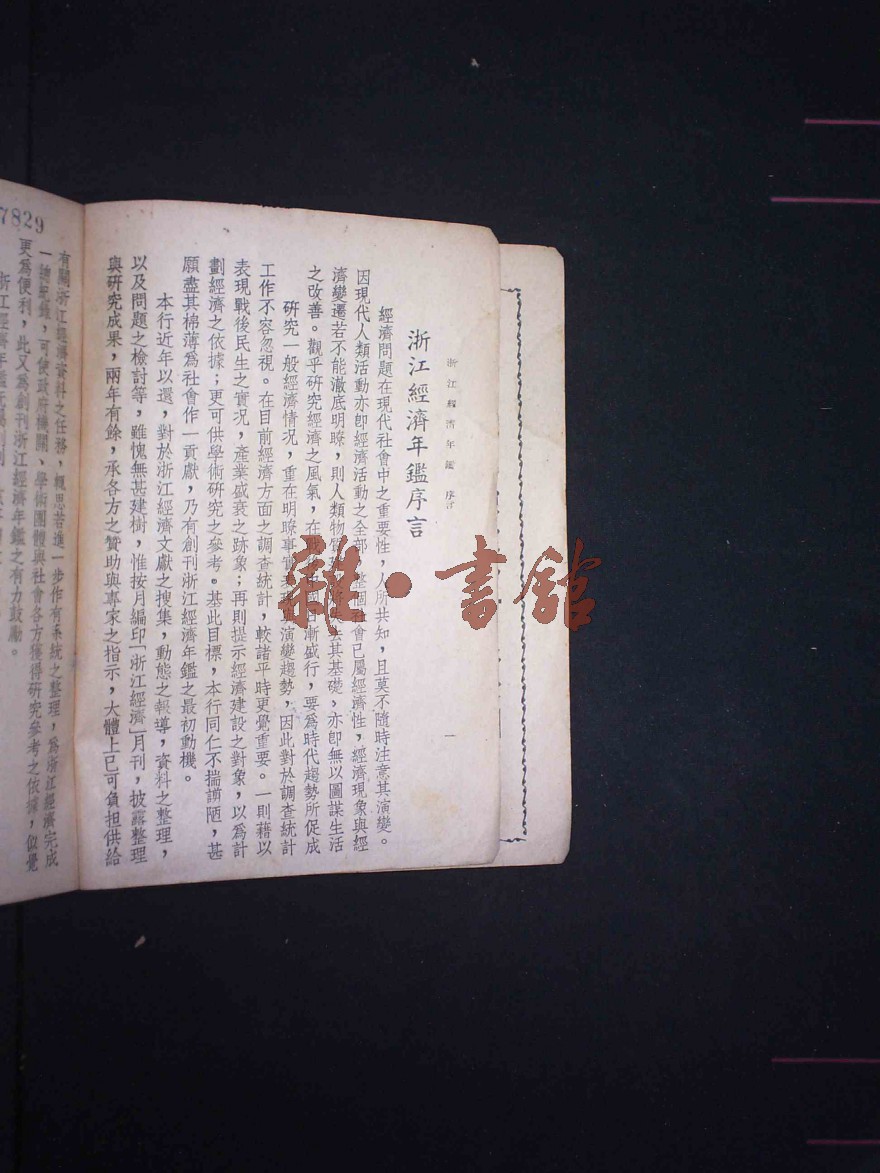 浙江經濟年鑑 序言
一
浙江經濟年鑑序言
經濟問題在現代社會中之重要性，人所共知，且莫不隨時注意其演變。
因現代人類活動亦卽經濟活動之全部，整個社會已屬經濟性，經濟現象與經
濟變遷若不能澈底明瞭，則人類物質去其基礎，亦卽無以圖謀生活
之改善。觀乎研究經濟之風氣，在漸盛行，要爲時代趨勢所促成
研究一般經濟情况，重在明瞭事實與演變趨勢，因此對於調查統計
工作不容忽視。在目前經濟方面之調查統計，較諸平時更覺重要。一則藉以
表現戰後民生之實况，產業盛衰之跡象；再則提示經濟建設之對象，以爲計
劃經濟之依據；更可供學術研究之參考。基此目標，本行同仁不揣譾陋，甚
願盡其棉薄爲社會作一貢獻，乃有創刊浙江經濟年鑑之最初動機。
本行近年以還，對於浙江經濟文獻之搜集，動態之報導，資料之整理，
以及問題之檢討等，雖愧無甚建樹，惟按月編印「浙江經濟」月刊，披露整理
與研究成果，兩年有餘，承各方之贊助與專家之指示，大體上已可負担供給
有關浙江經濟資料之任務，思若進一步作有系統之整理，爲浙江經濟完成
一總紀錄，可使政府機關、學術團體與社會各方獲得研究參考之依據，似覺
更爲便利，此又爲創刊浙江經濟年鑑之有力鼓勵。
浙江經濟年鑑
7829
雜·書館